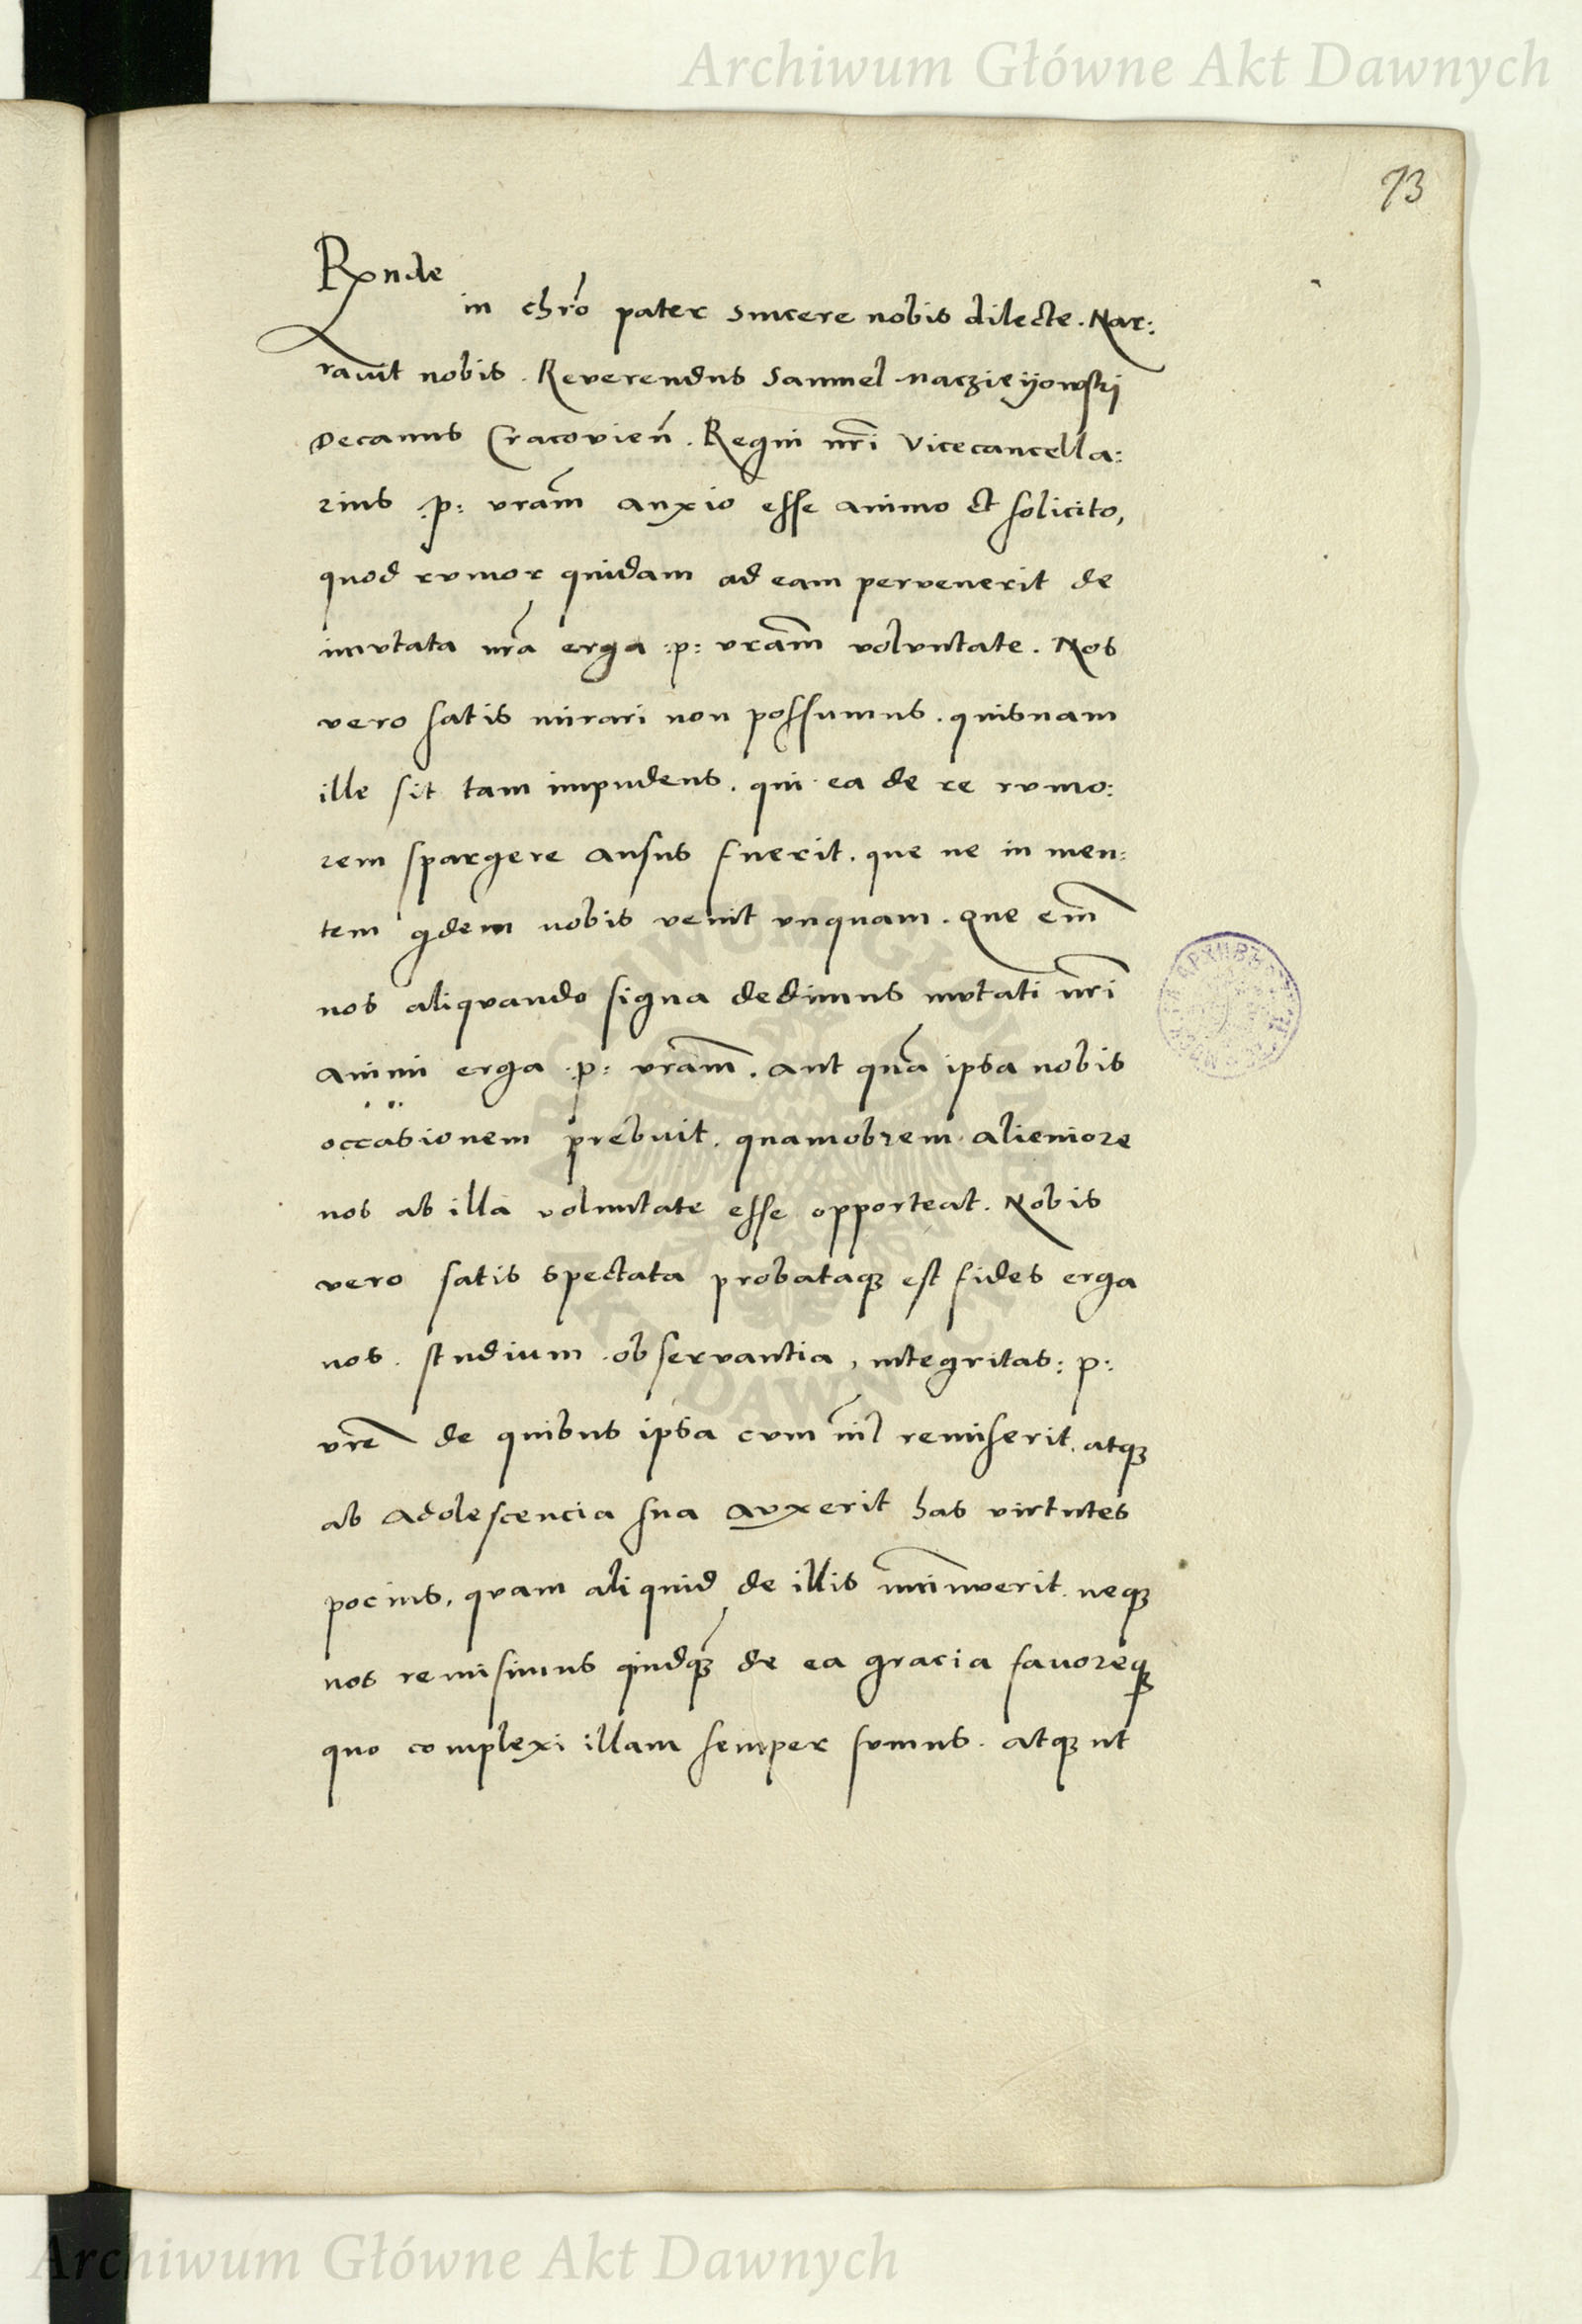 Archiwum Główne Akt Dawnych
73
Rnde
in chro pater sincere nobis dilecte. Nar:
ravit nobis. Reverendus Samuel Maczieyowski
Decanus Cracovien. Regni nri Vicecancella:
rius :p: vram anxio esse animo et solicito,
quod rumor quidam ad eam pervenerit de
imutata nra erga :p: vram voluntate. Nos
vero satis mirari non possumus. quisnam
ille sit tam impudens. qui ea de re rumo:
rem spargere ausus fuerit. que ne in men:
tem qdem nobis venit unquam. Que em
nos aliquando signa dedimus mutati nri
animi erga :p: vram. aut qua ipsa nobis
occasionem prebuit. quamobrem alieniore
nos ab illa voluntate esse opporteat. Nobis
vero satis spectata probataq est fides erga
nos. studium. observantia, integritas: p:
vre de quibus ipsa cum nil remiserit. atq
ab adolescencia sua auxerit has virtutes
pocius, quam aliquid de illis iminuerit. neq
nos remisimus quidq de ea gracia favoreq
quo complexi illam semper sumus. atq ut
ARCHIWUM GŁÓWNE
AKT DAWNYCH
Archiwum Główne Akt Dawnych